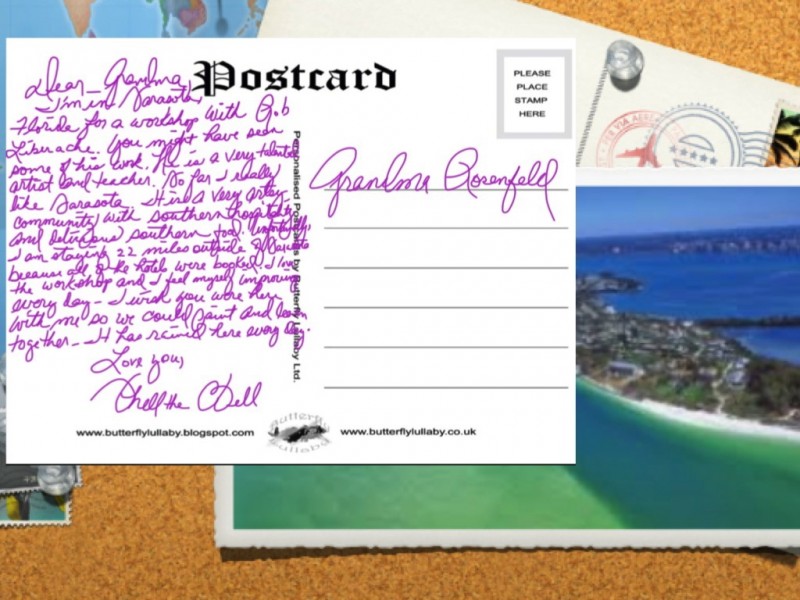 Postcard
PLEASE
PLACE
STAMP
HERE
Dear Grandma
I'm in Sarasota,
Florida for a workshop with Rob
Liberace. You might have seen
some of his work. He is a very talented
artist and teacher. So far I really
like Sarasota. It is a very artsy
community with southern hospitality
and delicious southern food. Unfortunately,
I am staying 22 miles outside of Sarasota
because all of the hotels were booked. I love
the workshop and I feel myself improving
every day - I wish you were here
with me so we could paint and learn
together - It has rained here every day.
Love you,
Personalised Postcards by Butterfly Lullaby Ltd.
Grandma Rosenfeld
www.butterflylullaby.blogspot.com
Butterfly
Lullaby
www.butterflylullaby.co.uk